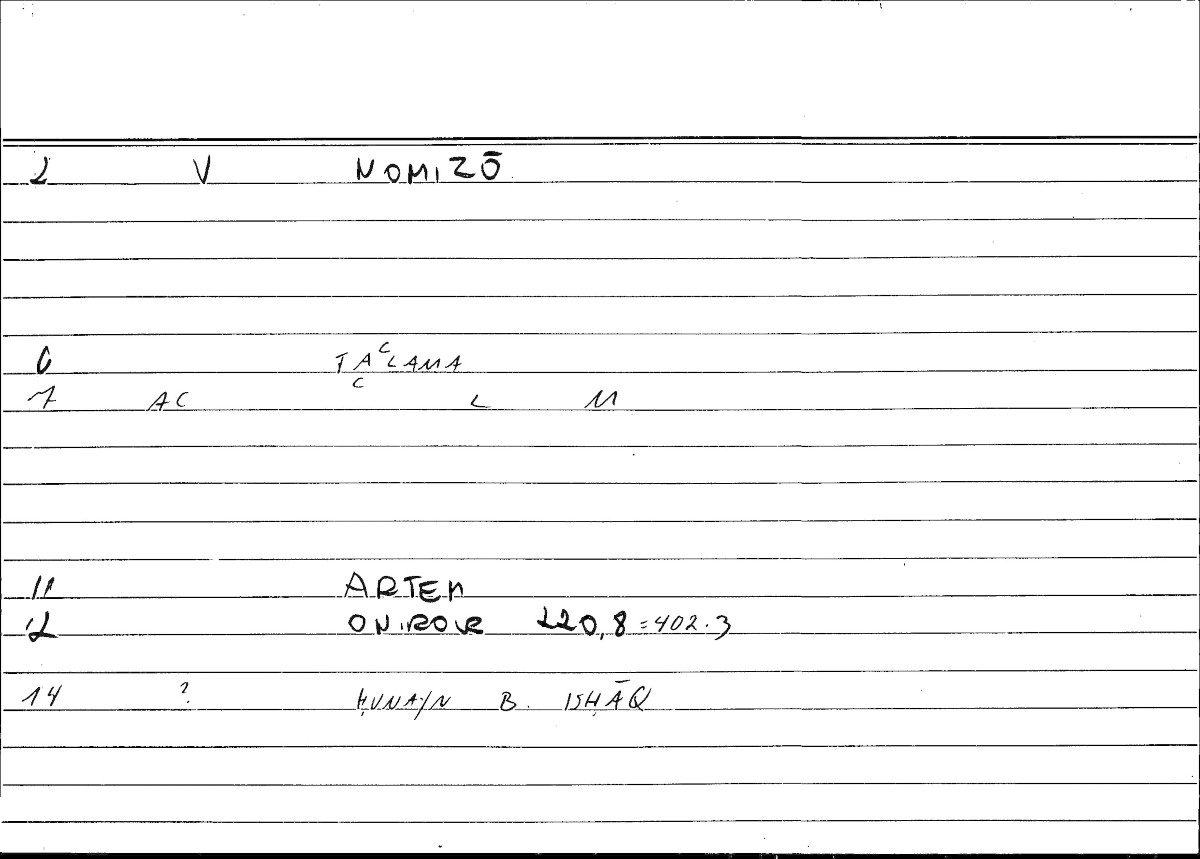 2 V NOMIZŌ
6 TAᶜLAMA
7 AC C L M
11 ARTEM
12 ONIROCR 220,8 = 402.3
14 ? ḤUNAYN B. ISḤĀQ